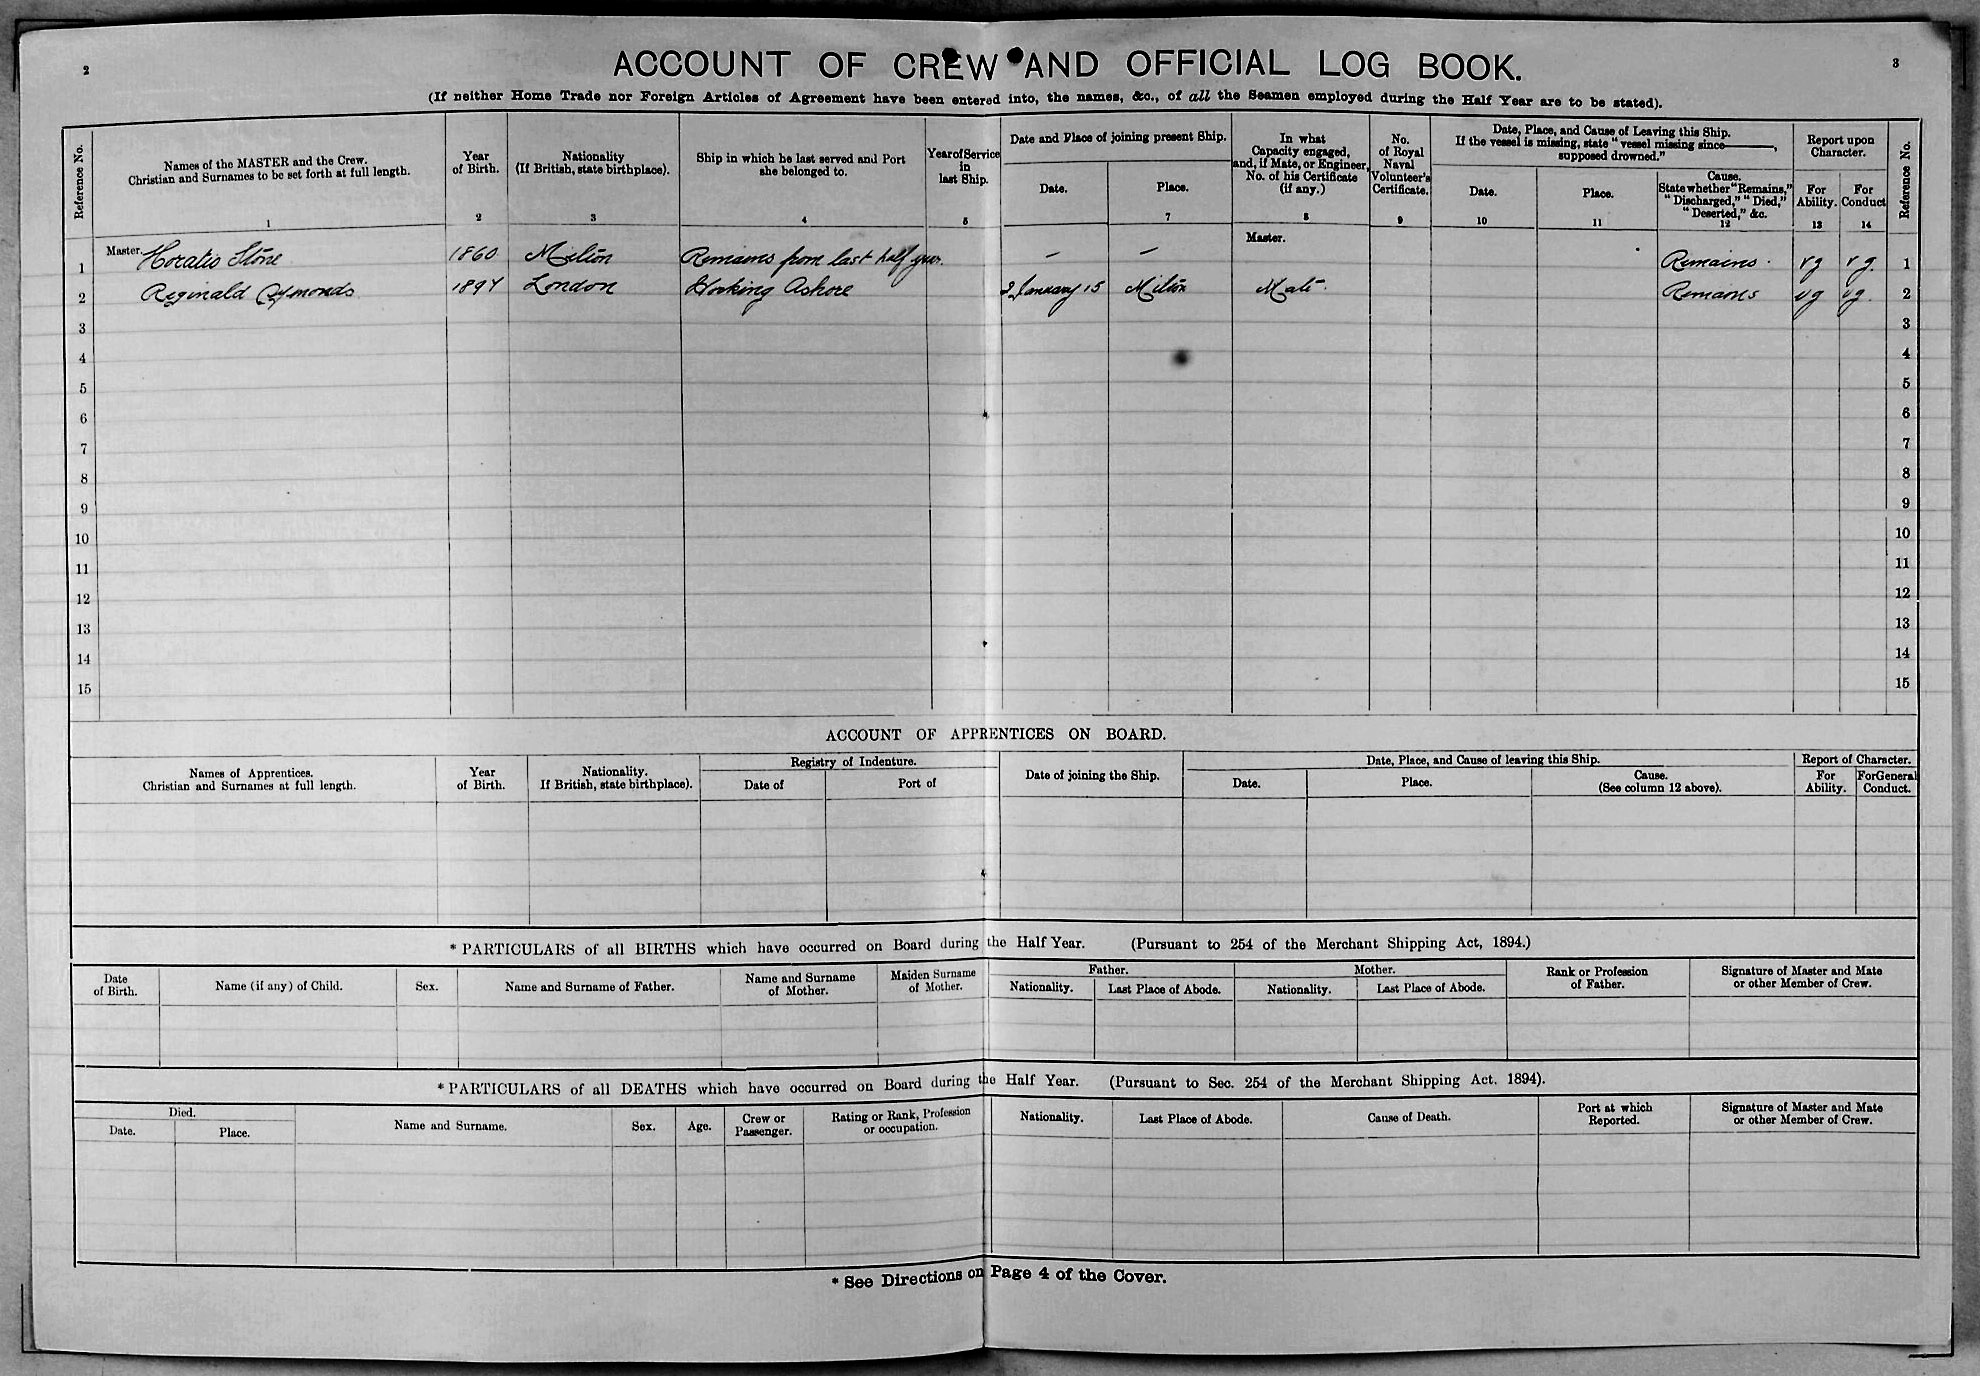 2
3
ACCOUNT OF CREW AND OFFICIAL LOG BOOK.
(If neither Home Trade nor Foreign Articles of Agreement have been entered into, the names, &c., of all the Seamen employed during the Half Year are to be stated).
Reference No.
Names of the MASTER and the Crew.
Christian and Surnames to be set forth at full length.
1
Year
of Birth.
2
Nationality
(If British, state birthplace).
3
Ship in which he last served and Port
she belonged to.
4
Year of Service
in
last Ship.
5
Date and Place of joining present Ship.
Date.
Place.
7
In what
Capacity engaged,
and, if Mate, or Engineer,
No. of his Certificate
(if any.)
8
No.
of Royal
Naval
Volunteer's
Certificate.
9
Date, Place, and Cause of Leaving this Ship.
If the vessel is missing, state "vessel missing since———,
supposed drowned."
Date.
10
Place.
11
Cause.
State whether "Remains,"
"Discharged," "Died,"
"Deserted," &c.
12
Report upon
Character.
For
Ability.
13
For
Conduct
14
Reference No.
1 Master. Horatio Stone 1860 Milton Remains from last half year. — — Master. Remains. vg vg. 1
2 Reginald Symonds 1897 London Working Ashore 2 January 15 Milton Mate. Remains vg vg. 2
3 3
4 4
5 5
6 6
7 7
8 8
9 9
10 10
11 11
12 12
13 13
14 14
15 15
ACCOUNT OF APPRENTICES ON BOARD.
Names of Apprentices.
Christian and Surnames at full length.
Year
of Birth.
Nationality.
If British, state birthplace).
Registry of Indenture.
Date of
Port of
Date of joining the Ship.
Date, Place, and Cause of leaving this Ship.
Date.
Place.
Cause.
(See column 12 above).
Report of Character.
For
Ability.
For General
Conduct.
* PARTICULARS of all BIRTHS which have occurred on Board during the Half Year. (Pursuant to 254 of the Merchant Shipping Act, 1894.)
Date
of Birth.
Name (if any) of Child.
Sex.
Name and Surname of Father.
Name and Surname
of Mother.
Maiden Surname
of Mother.
Father.
Nationality.
Last Place of Abode.
Mother.
Nationality.
Last Place of Abode.
Rank or Profession
of Father.
Signature of Master and Mate
or other Member of Crew.
* PARTICULARS of all DEATHS which have occurred on Board during the Half Year. (Pursuant to Sec. 254 of the Merchant Shipping Act. 1894).
Died.
Date.
Place.
Name and Surname.
Sex.
Age.
Crew or
Passenger.
Rating or Rank, Profession
or occupation.
Nationality.
Last Place of Abode.
Cause of Death.
Port at which
Reported.
Signature of Master and Mate
or other Member of Crew.
* See Directions on Page 4 of the Cover.